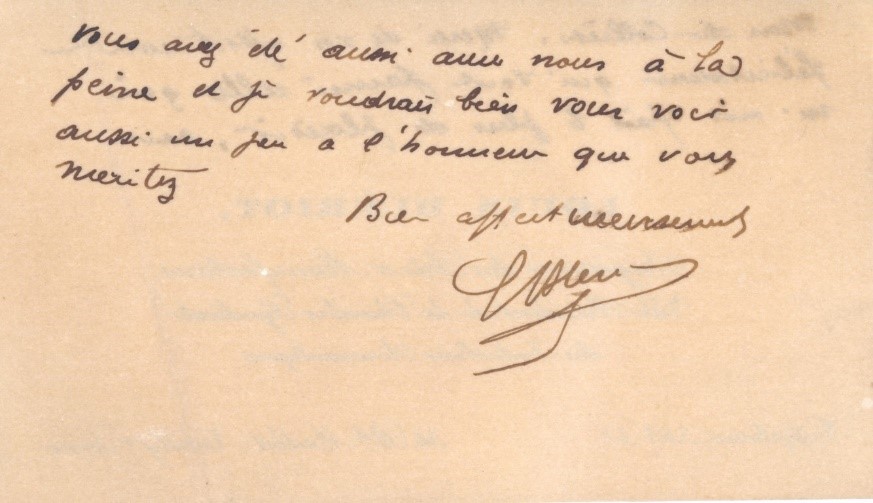 vous avez été aussi avec nous à la
peine et je voudrais bien vous voir
aussi un peu a l'honneur que vous
meritez
Bien affectueusement